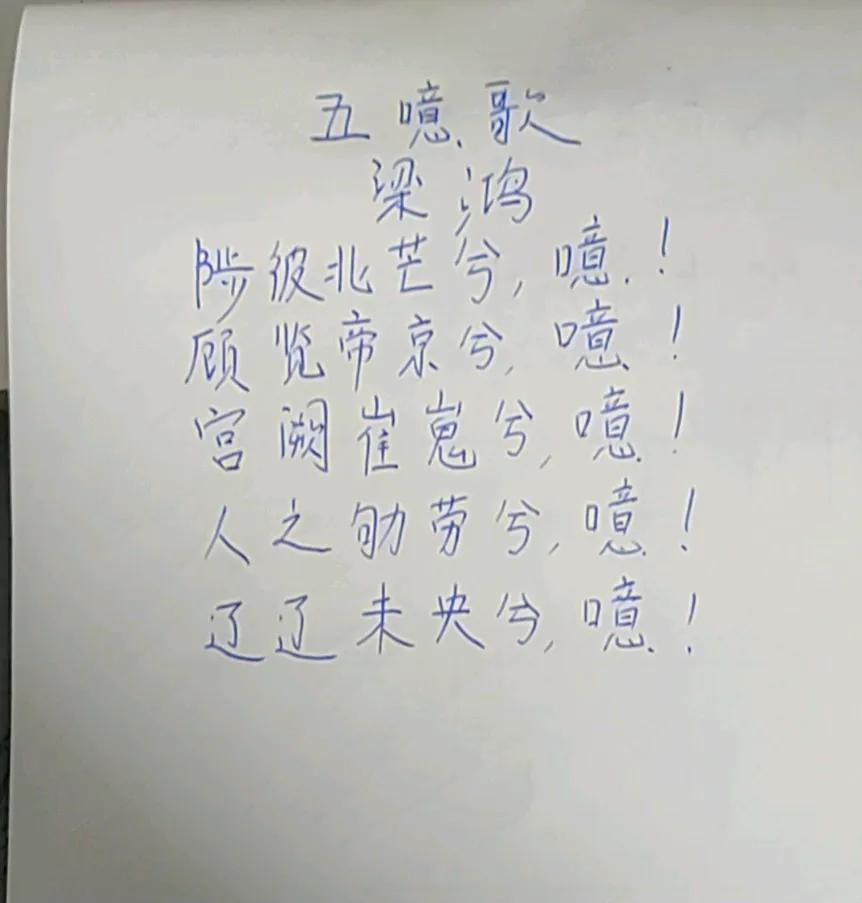 五噫歌
梁鸿
陟彼北芒兮,噫!
顾览帝京兮,噫!
宫阙崔嵬兮,噫!
人之劬劳兮,噫!
辽辽未央兮,噫!